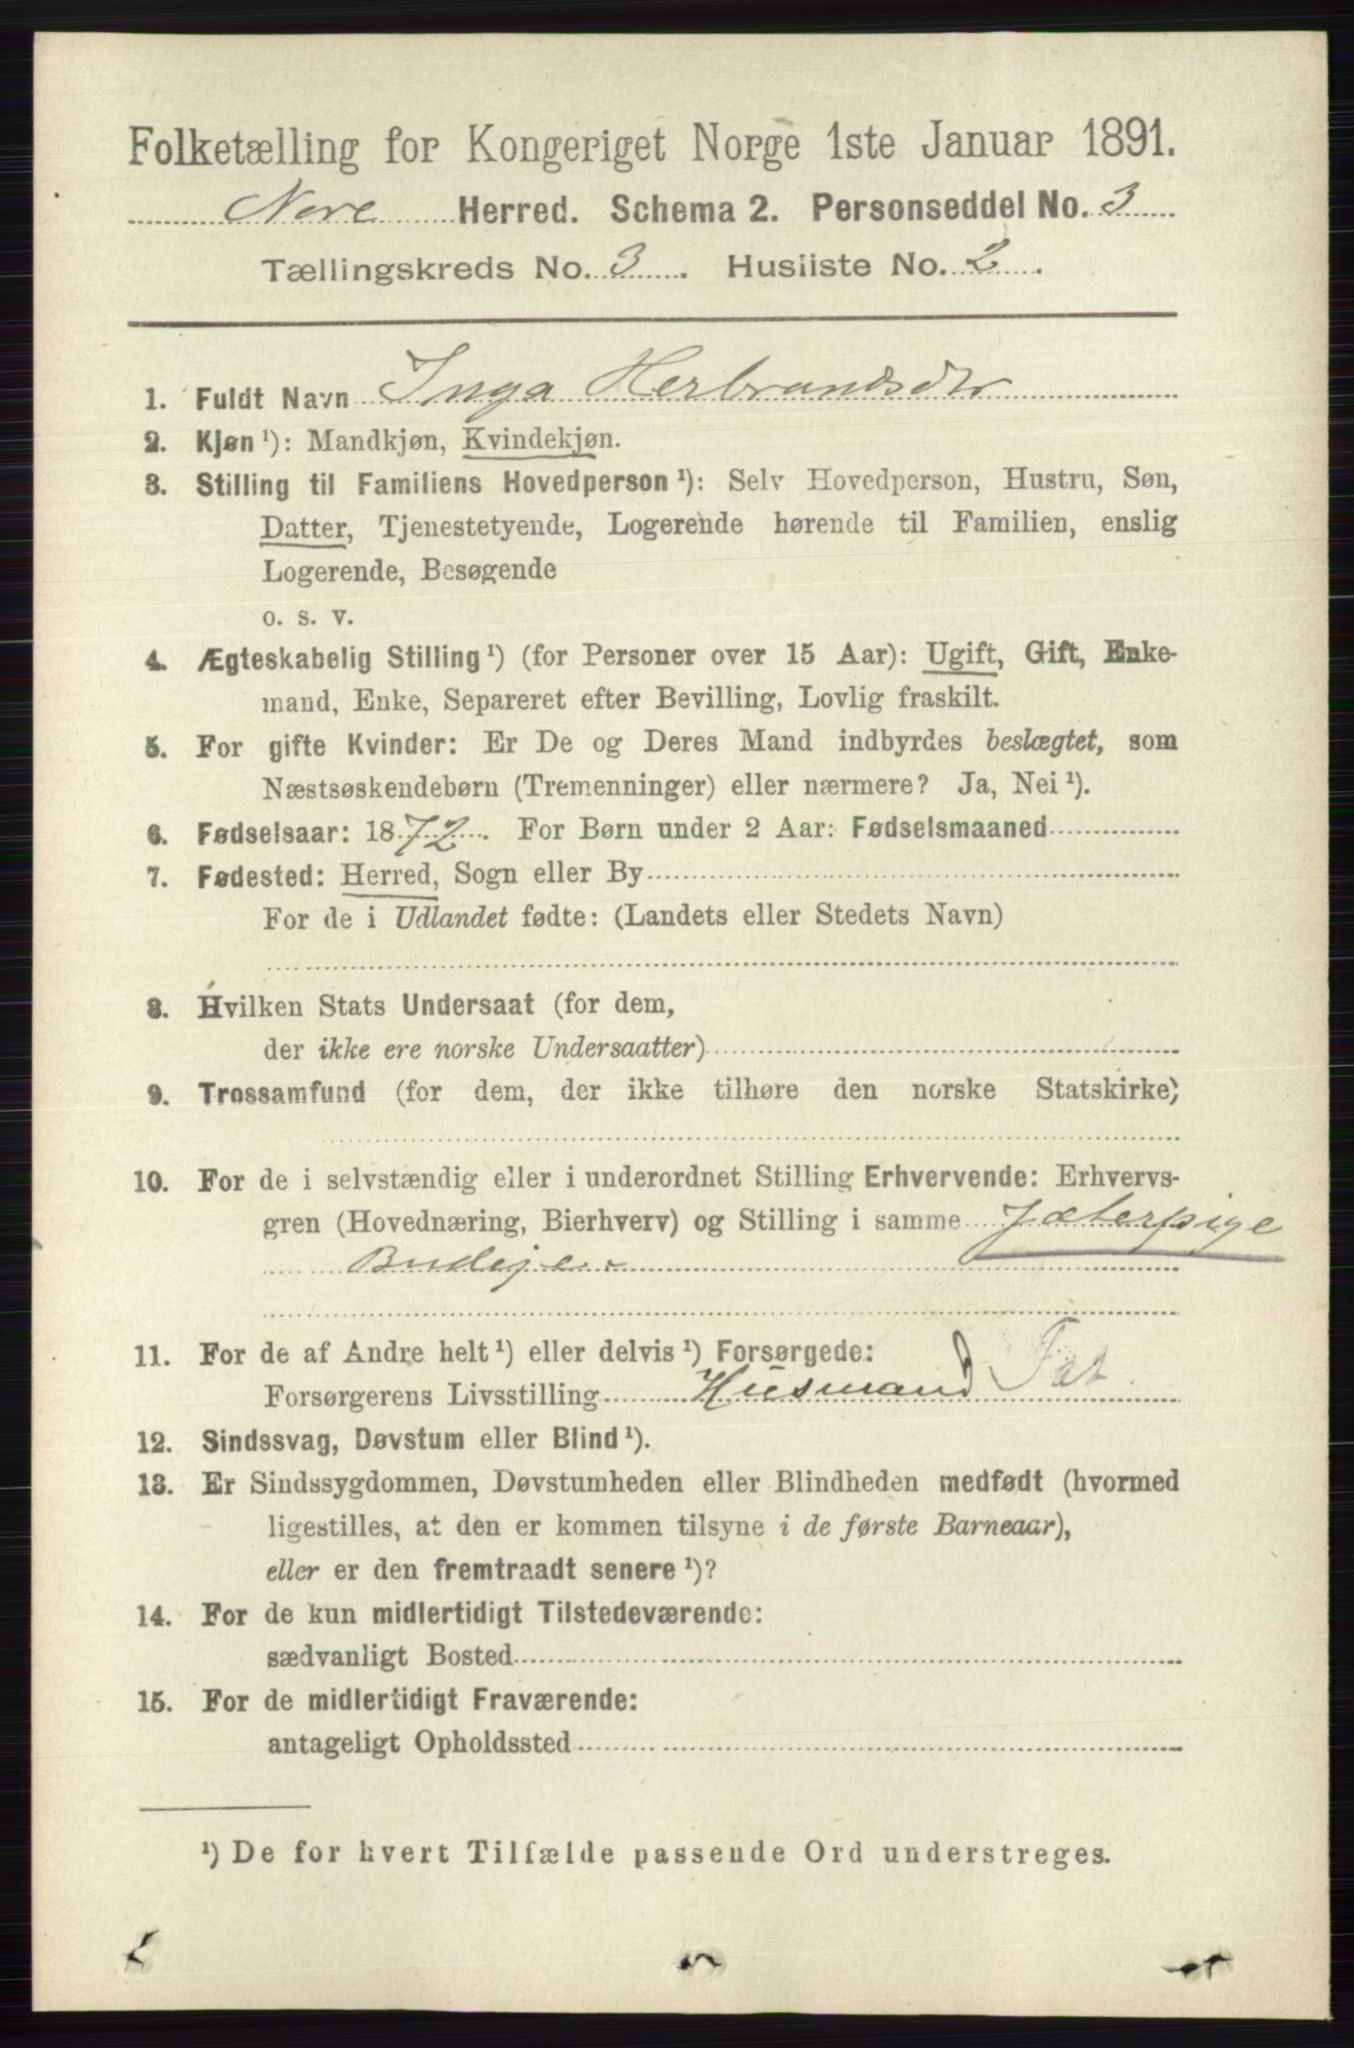 Folketælling for Kongeriget Norge 1ste Januar 1891.
Nore Herred. Schema 2. Personseddel No. 3
Tællingskreds No. 3. Husliste No. 2.
1. Fuldt Navn Inga Herbrandsdtr
2. Kjøn ¹): Mandkjøn, Kvindekjøn.
3. Stilling til Familiens Hovedperson ¹): Selv Hovedperson, Hustru, Søn,
Datter, Tjenestetyende, Logerende hørende til Familien, enslig
Logerende, Besøgende
o. s. v.
4. Ægteskabelig Stilling ¹) (for Personer over 15 Aar): Ugift, Gift, Enke-
mand, Enke, Separeret efter Bevilling, Lovlig fraskilt.
5. For gifte Kvinder: Er De og Deres Mand indbyrdes beslægtet, som
Næstsøskendebørn (Tremenninger) eller nærmere? Ja, Nei ¹).
6. Fødselsaar: 1872. For Børn under 2 Aar: Fødselsmaaned
7. Fødested: Herred, Sogn eller By
For de i Udlandet fødte: (Landets eller Stedets Navn)
8. Hvilken Stats Undersaat (for dem,
der ikke ere norske Undersaatter)
9. Trossamfund (for dem, der ikke tilhøre den norske Statskirke)
10. For de i selvstændig eller i underordnet Stilling Erhvervende: Erhvervs-
gren (Hovednæring, Bierhverv) og Stilling i samme Jæterpige
Budeje
11. For de af Andre helt ¹) eller delvis ¹) Forsørgede:
Forsørgerens Livsstilling Husmand
12. Sindssvag, Døvstum eller Blind ¹).
13. Er Sindssygdommen, Døvstumheden eller Blindheden medfødt (hvormed
ligestilles, at den er kommen tilsyne i de første Barneaar),
eller er den fremtraadt senere ¹)?
14. For de kun midlertidigt Tilstedeværende:
sædvanligt Bosted
15. For de midlertidigt Fraværende:
antageligt Opholdssted
¹) De for hvert Tilfælde passende Ord understreges.